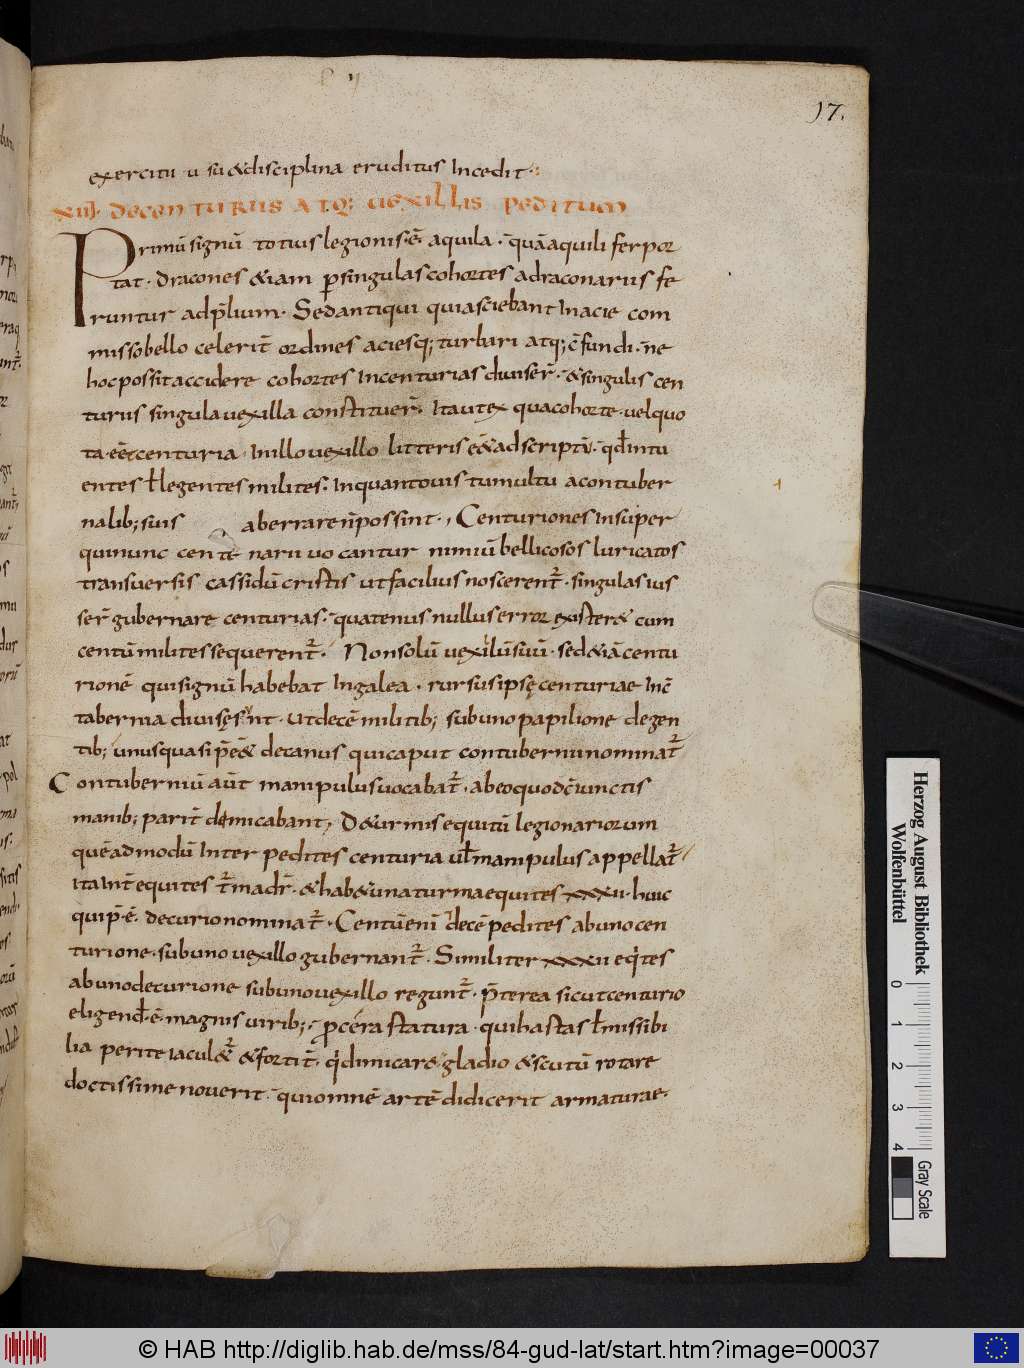 17.
exercitu usu &disciplina eruditus Incedit·
XIII· De centuriis atq; uexillis peditum
Primū signū totius legionis ē aquila· quā aquiliferpor
tat· dracones &iam p singulas cohortes adraconariis fe
runtur ad p̄lium· Sed antiqui quia sciebant In acie com
misso bello celerit̄ ordines aciesq; turbari atq; c̄fundi· ne
hoc possit accidere cohortes In centurias diuiser̄· &singulis cen
turiis singula uexilla constituer̄· Ita ut ex qua cohorte· uel quo
ta· eēt centuria· In illo uexillo litteris eēt adscriptū· qđ intu
entes ł legentes milites· In quantouis tumultu a contuber
nalib; suis aberrare n̄ possint· Centuriones Insuper
qui nunc centenarii uocantur nimiū bellicosos luricatos
transuersis cassidū cristis ut facilius noscerent̄· singulas ius
ser̄ gubernare centurias· quatenus nullus error exister& cum
centū milites sequerent̄· Non solū uexillū suū· sed &iā centu
rionē qui signū habebat In galea· rursus ipsę centuriae Inc̄
tabernia diuisę sunt· ut decē militib; sub uno papilione degen
tib; unus quasi p̄e&̄ decanus qui caput contubernii nominat̄
Contuberniū aūt manipulus uocabat̄· ab eo quod c̄iunctis
manib; parit̄ dimicabant, De turmis equitū legionariorum
quēadmodū Inter pedites centuria uł manipulus appellat̄
ita Int̄ equites t̄ma dr̄· &hab& una turma equites xxxii· huic
qui p̄·ē· decurio nominat̄· Centū enī decē pedites ab uno cen
turione· sub uno uexillo gubernant̄· Similiter xxxii eqites
ab uno decurione sub uno uexillo regunt̄· p̄terea sicut centurio
eligenđ·ē· magnis uirib; procera statura· qui hastas ł missibi
lia perite iacul&̄ &fortit̄· qi dimicare gladio &scutū rotare
doctissime nouerit· qui omnē artē didicerit armaturae·
Herzog August Bibliothek
Wolfenbüttel
0 1 2 3 4
Gray Scale
© HAB http://diglib.hab.de/mss/84-gud-lat/start.htm?image=00037